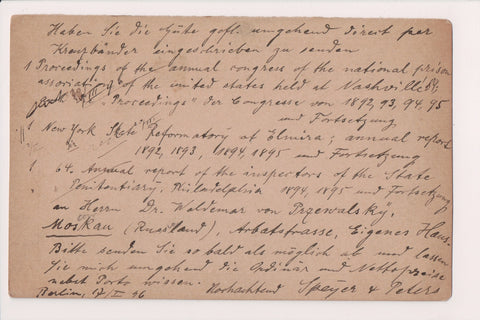 Haben Sie die Güte gefl. umgehend direct per
Kreuzbänder eingeschrieben zu senden
1 Proceedings of the annual congress of the national prison
association of the united states held at Nashville 89.
"Proceedings" der Congresse von 1892, 93, 94, 95
und Fortsetzung
1 New York State Reformatory at Elmira; annual report
1892, 1893, 1894, 1895 und Fortsetzung
1 64. Annual report of the inspectors of the State
Penitentiary, Philadelphia 1894, 1895 und Fortsetzung
an Herrn Dr. Waldemar von Przewalsky,
Moskau (Russland), Arbatstrasse, Eigenes Haus.
Bitte senden Sie so bald als möglich ab und lassen
Sie mich umgehend die Ordinär und Nettopreise
nebst Porto wissen.
Hochachtend Speyer & Peters
Berlin, 17/I 96